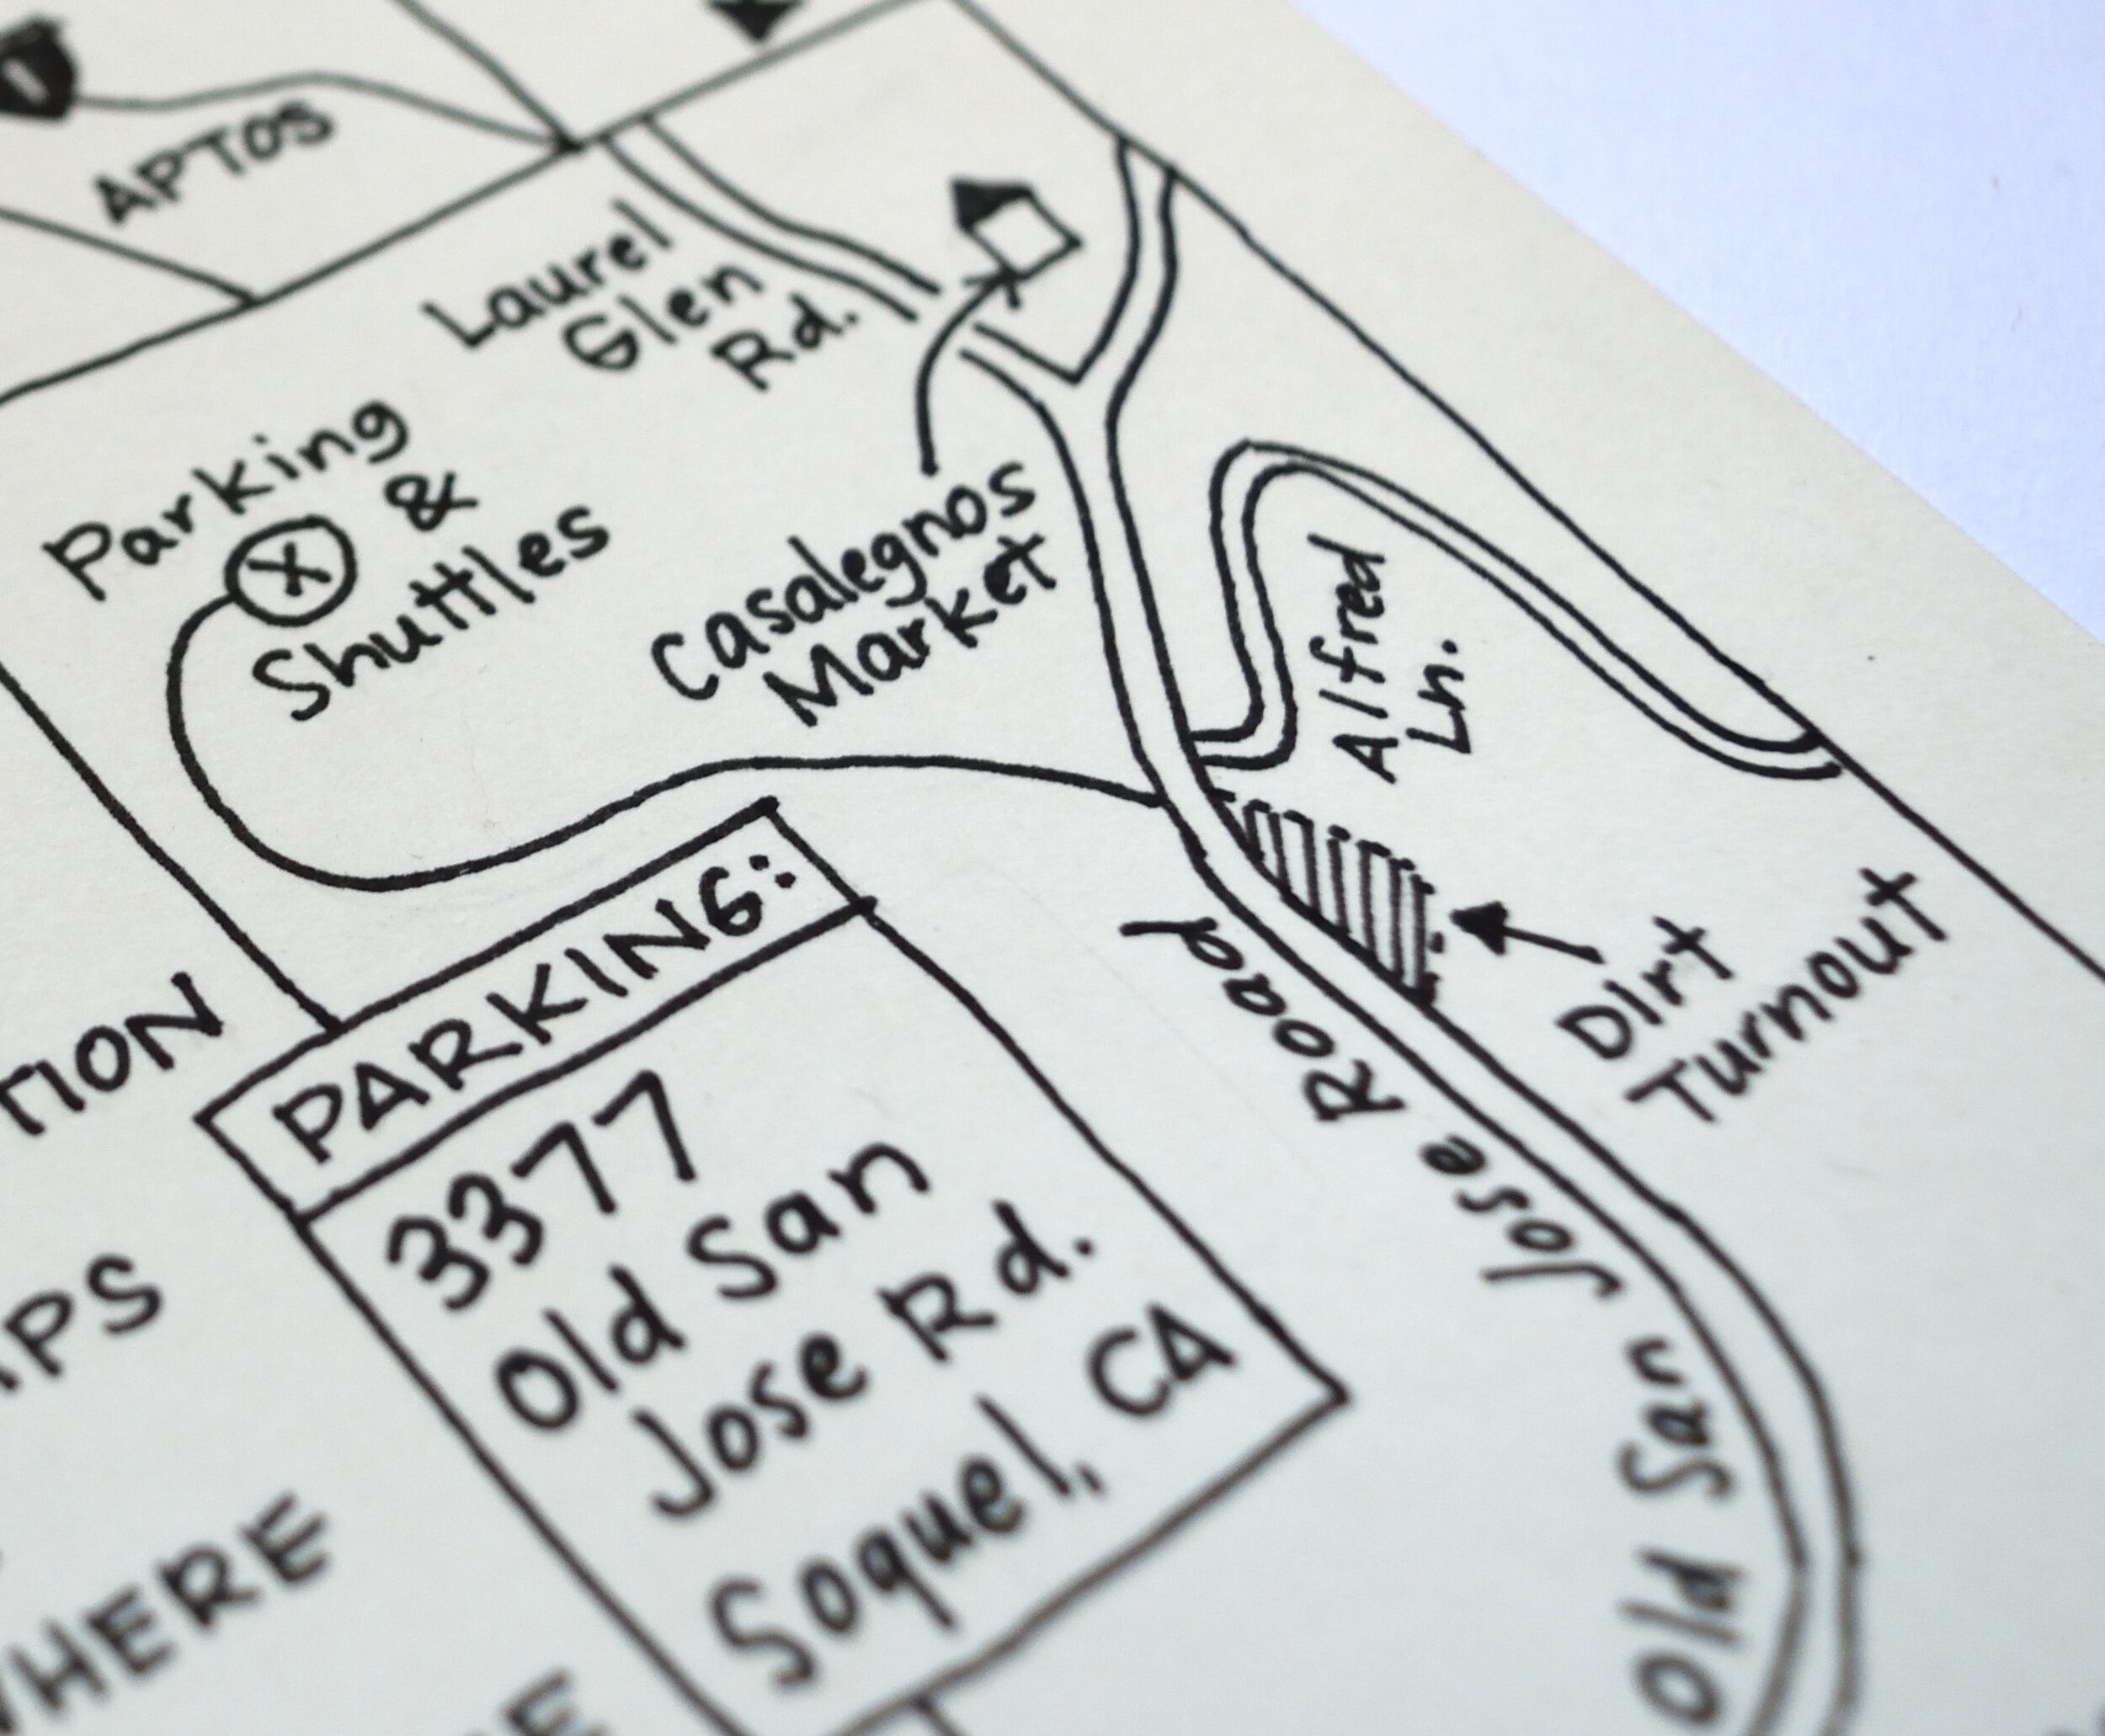 1
APTOS
Laurel
Glen
Rd.
Parking
X &
Shuttles
Casalegnos
Market
Alfred
Ln.
Dirt
Turnout
Old San Jose Road
PARKING:
3377
Old San
Jose Rd.
Soquel, CA